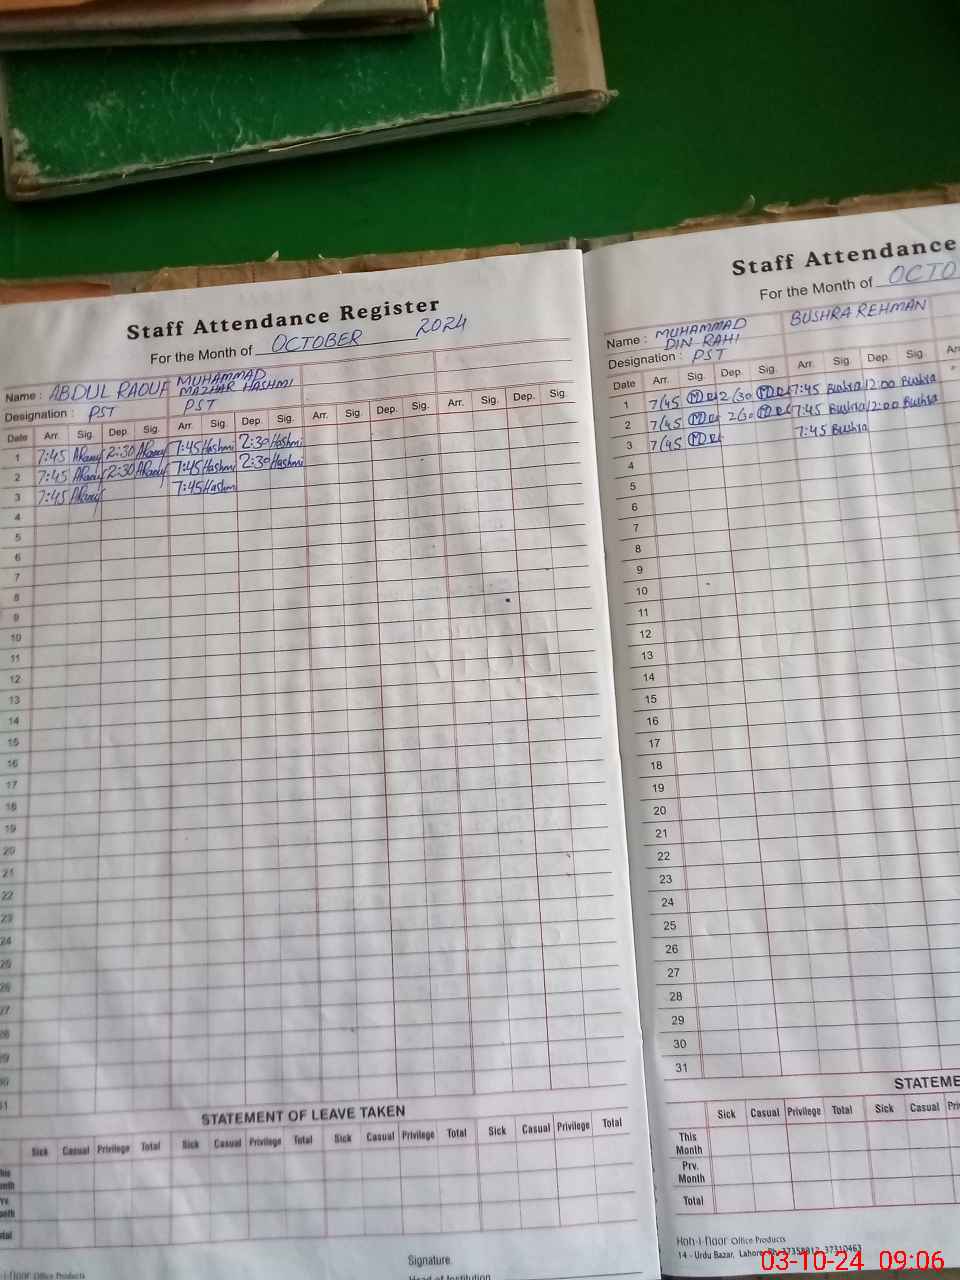 Staff Attendance Register
For the Month of OCTOBER 2024
Name : ABDUL RAOUF MUHAMMAD MAZHAR HASHMI
Designation : PST PST
Date Arr. Sig. Dep. Sig. Arr. Sig. Dep. Sig. Arr. Sig. Dep. Sig. Arr. Sig. Dep. Sig.
1 7:45 2:30 7:45 Hashmi 2:30 Hashmi
2 7:45 2:30 7:45 Hashmi 2:30 Hashmi
3 7:45 7:45 Hashmi
4
5
6
7
8
9
10
11
12
13
14
15
16
17
18
19
20
21
22
23
24
25
26
27
28
29
30
31
STATEMENT OF LEAVE TAKEN
Sick Casual Privilege Total Sick Casual Privilege Total Sick Casual Privilege Total Sick Casual Privilege Total
Signature
Head of Institution
Office Products
Staff Attendance
For the Month of OCTO
Name : MUHAMMAD DIN RAHI BUSHRA REHMAN
Designation : PST
Date Arr. Sig. Dep. Sig. Arr. Sig. Dep. Sig. Arr.
1 7/45 2/30 7:45 Bushra 12:00 Bushra
2 7/45 2/30 7:45 Bushra 12:00 Bushra
3 7/45 7:45 Bushra
4
5
6
7
8
9
10
11
12
13
14
15
16
17
18
19
20
21
22
23
24
25
26
27
28
29
30
31
STATEME
Sick Casual Privilege Total Sick Casual Pri
This Month
Prv. Month
Total
Koh-i-noor Office Products
14 - Urdu Bazar, Lahore. Ph: 37358812, 37310463
03-10-24 09:06